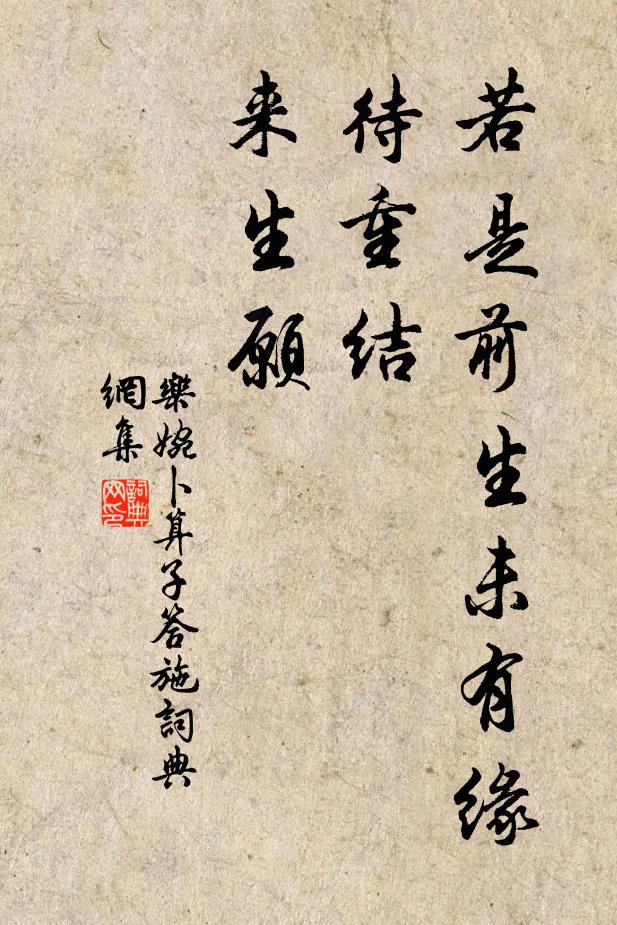 若是前生未有緣
待重結
来生願
樂婉卜算子答施詞典
網集
詞典网印